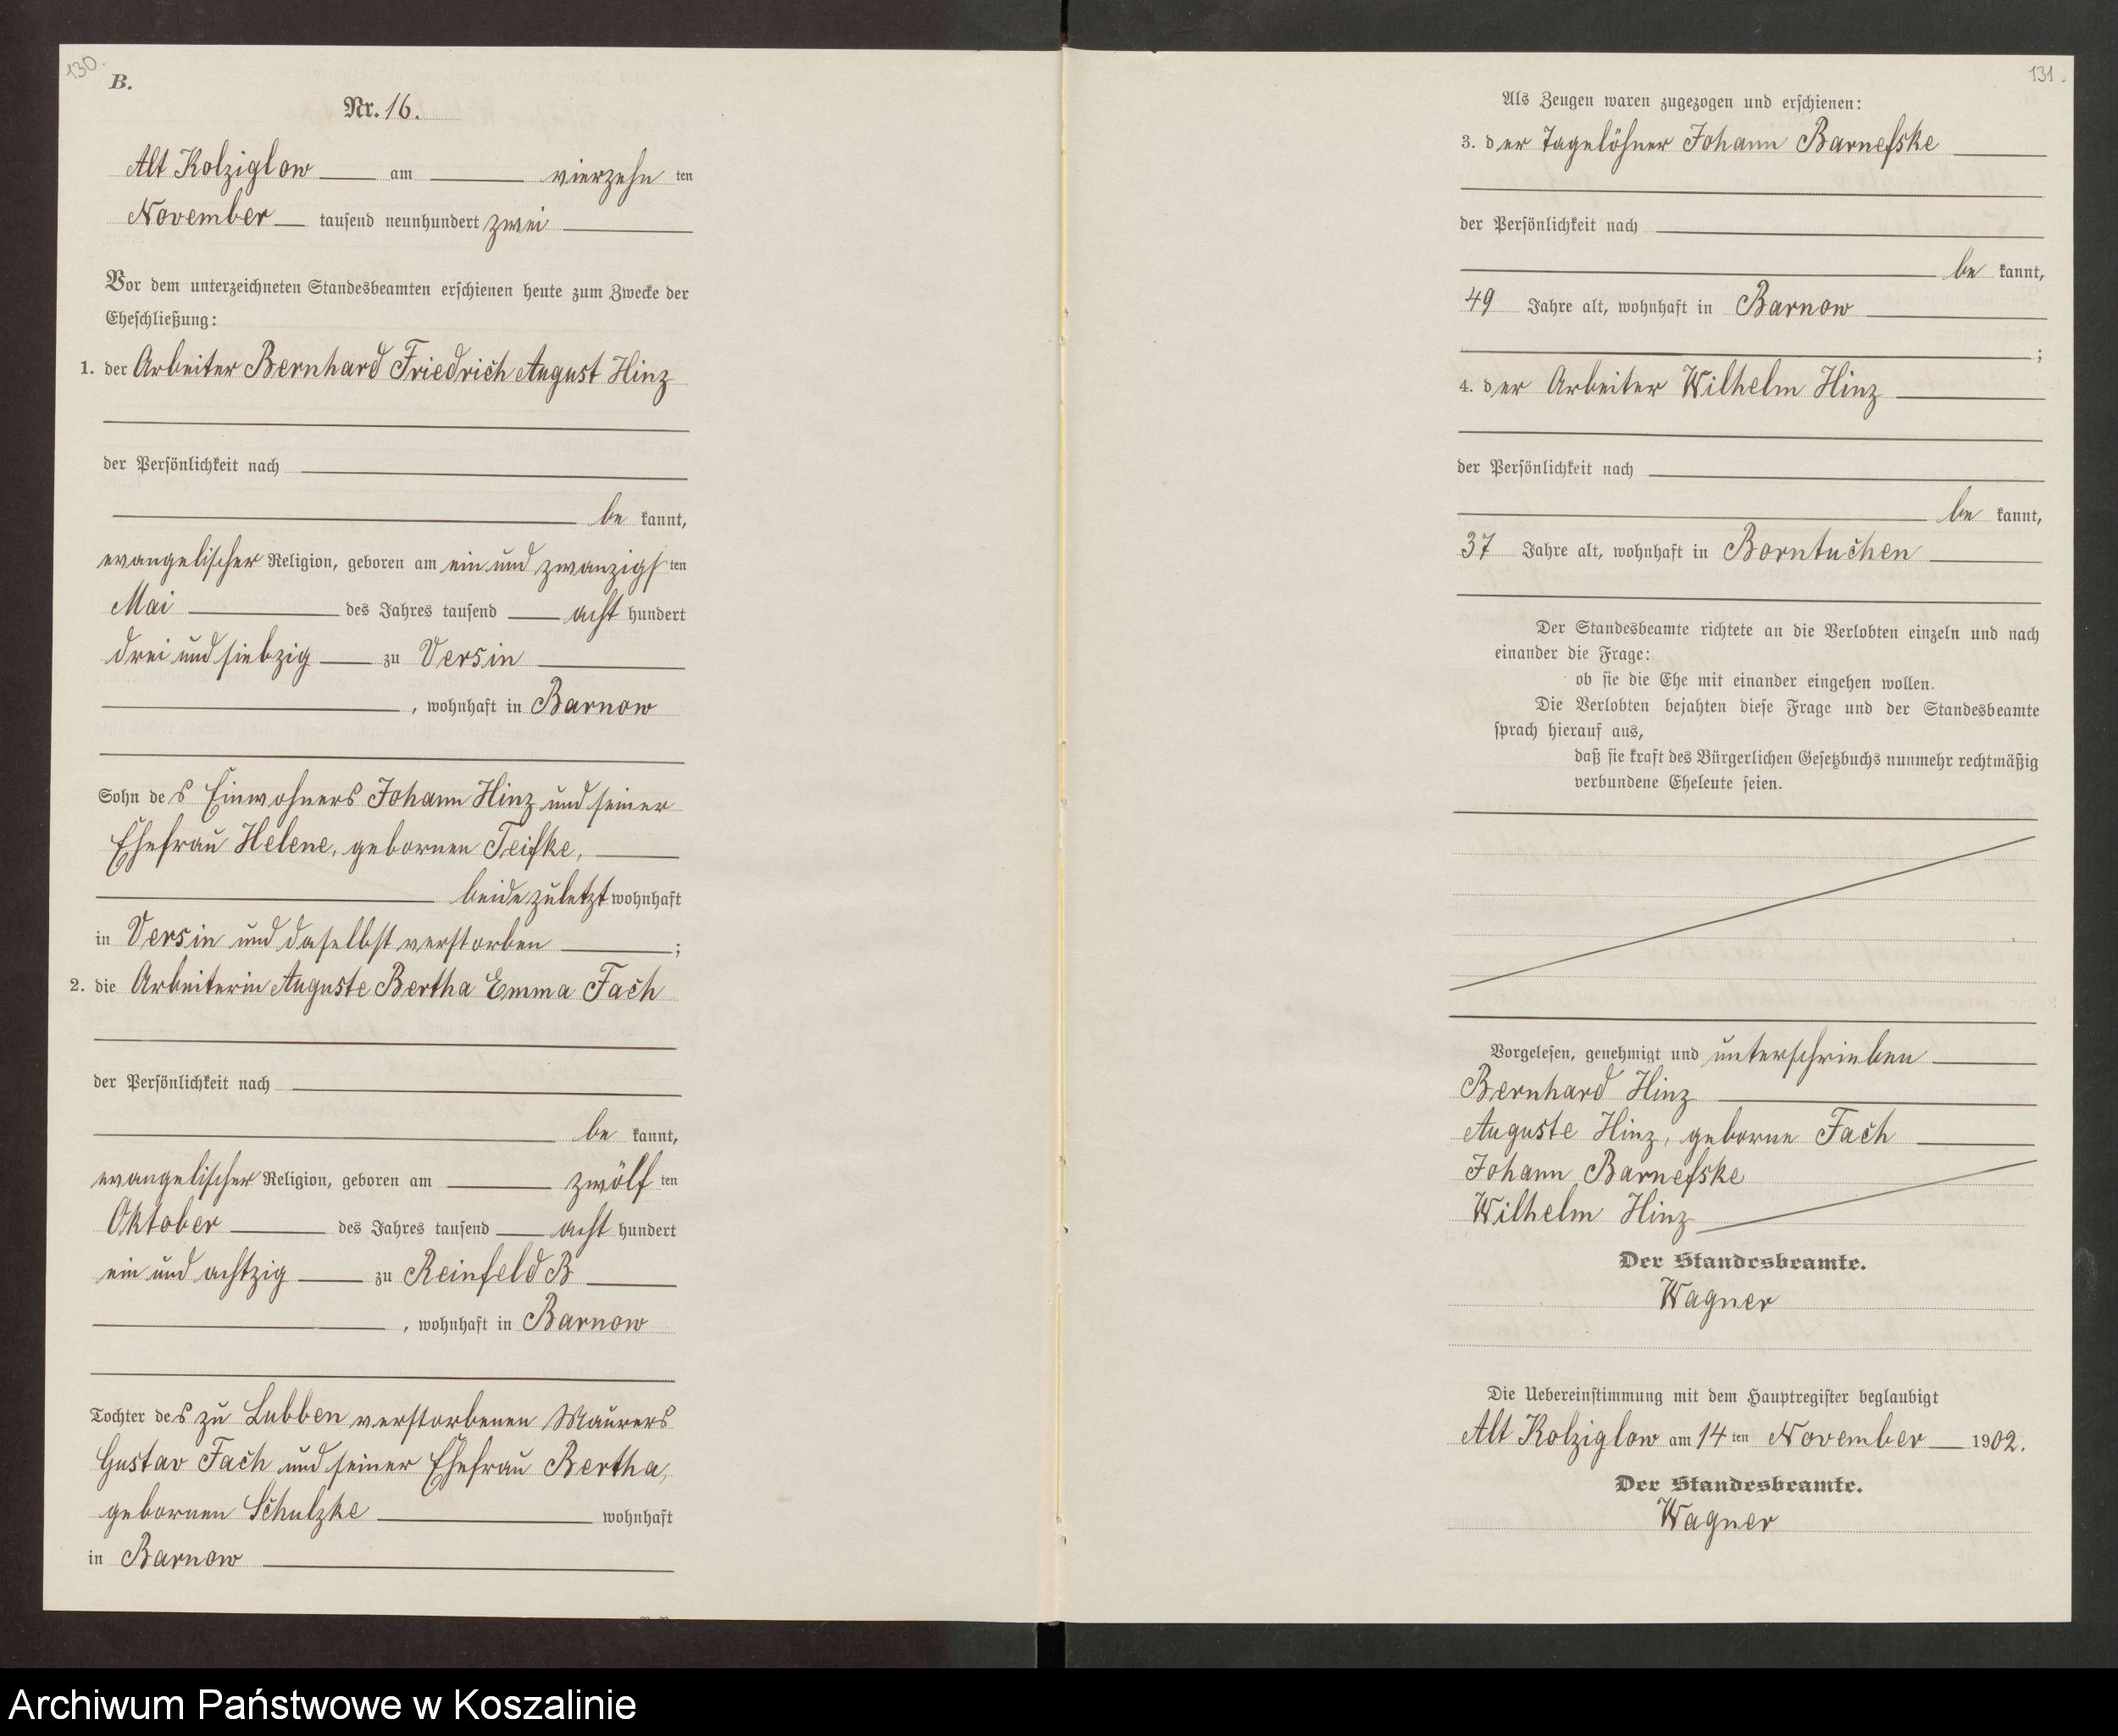 130.
B.
Nr. 16.
Alt Kolziglow am vierzehn ten
November tausend neunhundert zwei
Vor dem unterzeichneten Standesbeamten erschienen heute zum Zwecke der
Eheschließung:
1. der Arbeiter Bernhard Friedrich August Hinz
der Persönlichkeit nach
be kannt,
evangelischer Religion, geboren am ein und zwanzigs ten
Mai des Jahres tausend acht hundert
drei und siebzig zu Versin
, wohnhaft in Barnow
Sohn des Einwohners Johann Hinz und seiner
Ehefrau Helene, gebornen Teifke,
beide zuletzt wohnhaft
in Versin und daselbst verstorben ;
2. die Arbeiterin Auguste Bertha Emma Fach
der Persönlichkeit nach
be kannt,
evangelischer Religion, geboren am zwölf ten
Oktober des Jahres tausend acht hundert
ein und achtzig zu Reinfeld B
, wohnhaft in Barnow
Tochter des zu Lubben verstorbenen Maurers
Gustav Fach und seiner Ehefrau Bertha,
gebornen Schulzke wohnhaft
in Barnow
131.
Als Zeugen waren zugezogen und erschienen:
3. der Tagelöhner Johann Barnefske
der Persönlichkeit nach
be kannt,
49 Jahre alt, wohnhaft in Barnow
;
4. der Arbeiter Wilhelm Hinz
der Persönlichkeit nach
be kannt,
37 Jahre alt, wohnhaft in Borntuchen
Der Standesbeamte richtete an die Verlobten einzeln und nach
einander die Frage:
ob sie die Ehe mit einander eingehen wollen.
Die Verlobten bejahten diese Frage und der Standesbeamte
sprach hierauf aus,
daß sie kraft des Bürgerlichen Gesetzbuchs nunmehr rechtmäßig
verbundene Eheleute seien.
Vorgelesen, genehmigt und unterschrieben
Bernhard Hinz
Auguste Hinz, geborne Fach
Johann Barnefske
Wilhelm Hinz
Der Standesbeamte.
Wagner
Die Uebereinstimmung mit dem Hauptregister beglaubigt
Alt Kolziglow am 14 ten November 1902.
Der Standesbeamte.
Wagner
Archiwum Państwowe w Koszalinie